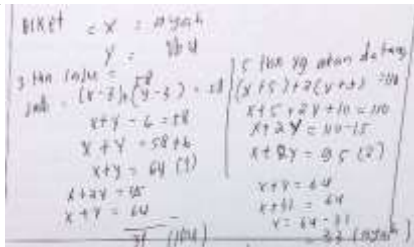 Diket = x = Ayah
y = Ibu
3 thn lalu = 58
Jwb = (x-3)+(y-3) = 58
x+y-6 = 58
x+y = 58+6
x+y = 64 (1)
x+2y = 95
x+y = 64
31 (Ibu)
5 thn yg akan datang
(x+5)+2(y+5) = 110
x+5+2y+10 = 110
x+2y = 110-15
x+2y = 95 (2)
x+y = 64
x+31 = 64
x = 64-31
= 33 (Ayah)